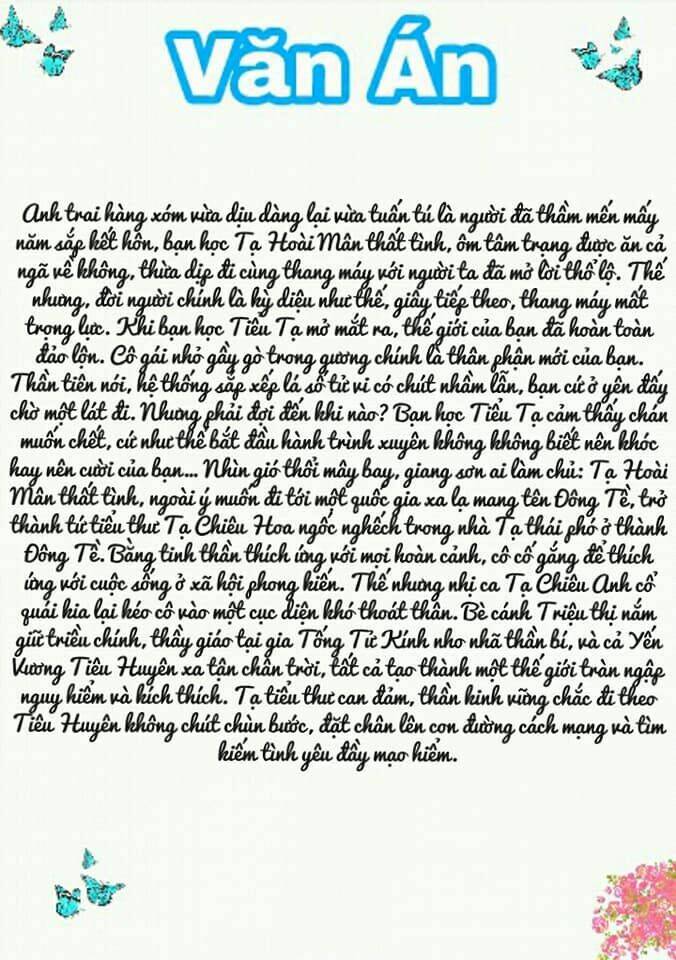 Văn Án
Anh trai hàng xóm vừa dịu dàng lại vừa tuấn tú là người đã thầm mến mấy
năm sắp kết hôn, bạn học Tạ Hoài Mân thất tình, ôm tâm trạng được ăn cả
ngã về không, thừa dịp đi cùng thang máy với người ta đã mở lời thổ lộ. Thế
nhưng, đời người chính là kỳ diệu như thế, giây tiếp theo, thang máy mất
trọng lực. Khi bạn học Tiểu Tạ mở mắt ra, thế giới của bạn đã hoàn toàn
đảo lộn. Cô gái nhỏ gầy gò trong gương chính là thân phận mới của bạn.
Thần tiên nói, hệ thống sắp xếp lá số tử vi có chút nhầm lẫn, bạn cứ ở yên đấy
chờ một lát đi. Nhưng phải đợi đến khi nào? Bạn học Tiểu Tạ cảm thấy chán
muốn chết, cứ như thế bắt đầu hành trình xuyên không không biết nên khóc
hay nên cười của bạn... Nhìn gió thổi mây bay, giang sơn ai làm chủ: Tạ Hoài
Mân thất tình, ngoài ý muốn đi tới một quốc gia xa lạ mang tên Đông Tề, trở
thành tứ tiểu thư Tạ Chiêu Hoa ngốc nghếch trong nhà Tạ thái phó ở thành
Đông Tề. Bằng tinh thần thích ứng với mọi hoàn cảnh, cô cố gắng để thích
ứng với cuộc sống ở xã hội phong kiến. Thế nhưng nhị ca Tạ Chiêu Anh cổ
quái kia lại kéo cô vào một cục diện khó thoát thân. Bè cánh Triệu thị nắm
giữ triều chính, thầy giáo tại gia Tống Tử Kính nho nhã thần bí, và cả Yến
Vương Tiêu Huyên xa tận chân trời, tất cả tạo thành một thế giới tràn ngập
nguy hiểm và kích thích. Tạ tiểu thư can đảm, thần kinh vững chắc đi theo
Tiêu Huyên không chút chùn bước, đặt chân lên con đường cách mạng và tìm
kiếm tình yêu đầy mạo hiểm.